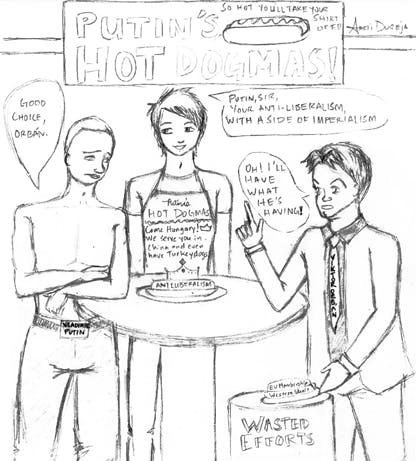 SO HOT YOU'LL TAKE YOUR
SHIRT
OFF!
PUTIN'S
HOT DOGMAS!
PUTIN, SIR,
YOUR ANTI-LIBERALISM,
WITH A SIDE OF IMPERIALISM
GOOD
CHOICE,
ORBÁN.
OH! I'LL
HAVE
WHAT
HE'S
HAVING!
Putin's
HOT DOGMAS
Come Hungary!
We serve you in
China and even
have Turkeydogs
ANTI-LIBERALISM
VLADIMIR
PUTIN
VIKTOR ORBÁN
EU Membership
Western
WASTED
EFFORTS